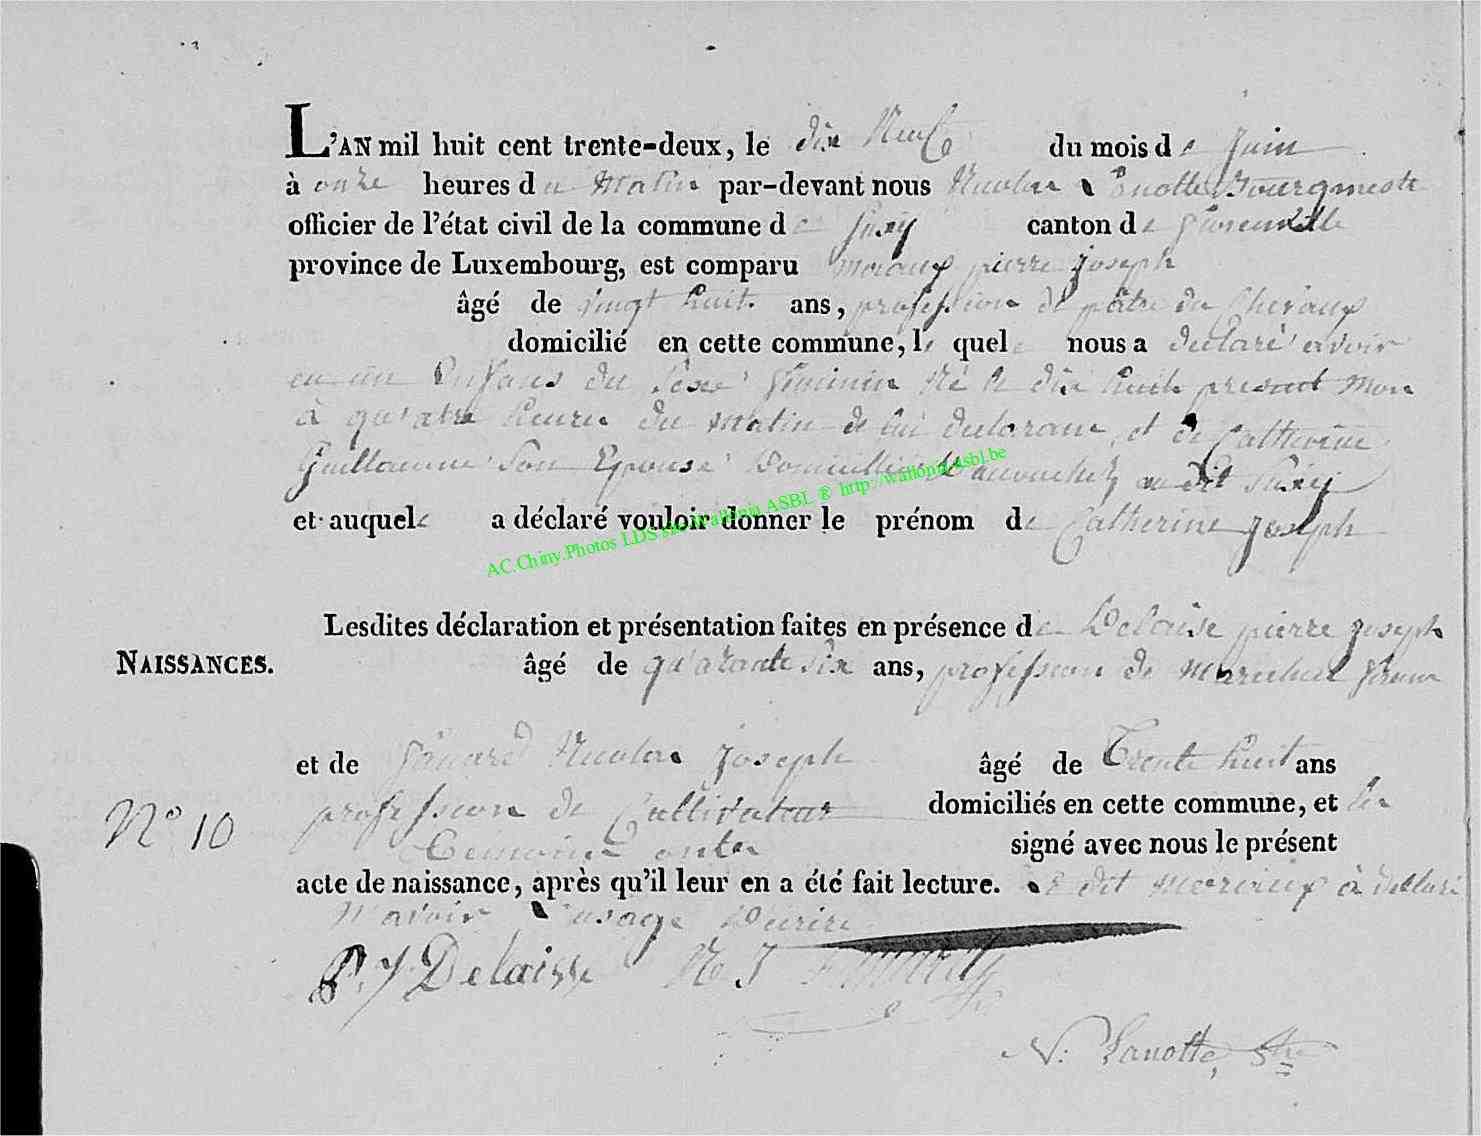 L'AN mil huit cent trente-deux, le dix Neuf du mois de Juin
à onze heures du Matin par-devant nous Nicolas Lanotte Bourgmestre
officier de l'état civil de la commune de Suxy canton de
province de Luxembourg, est comparu pierre joseph
âgé de vingt huit ans, profession de pâtre de Chevaux
domicilié en cette commune, le quel nous a declaré avoir
eu un Enfans du Sexe féminin Né le dix huit present Mon
à qu'atre heures du Matin de lui declarant, et de Catherine
Guillaume Son Epouse au dit Suxy
et auquel a déclaré vouloir donner le prénom de Catherine joseph
AC.Chiny.Photos LDS site Wallonia ASBL ® http://wallonia.asbl.be
Lesdites déclaration et présentation faites en présence de Delaisse pierre joseph
NAISSANCES. âgé de qu'arante six ans, profession de Marichal
et de Nicolas joseph âgé de Trente huit ans
N° 10 profession de Cultivateur domiciliés en cette commune, et les
Temoins ont signé avec nous le présent
acte de naissance, après qu'il leur en a été fait lecture. Le dit à declaré
N'avoir L'usage D'ecrire
P. J Delaisse N J
N. Lanotte,